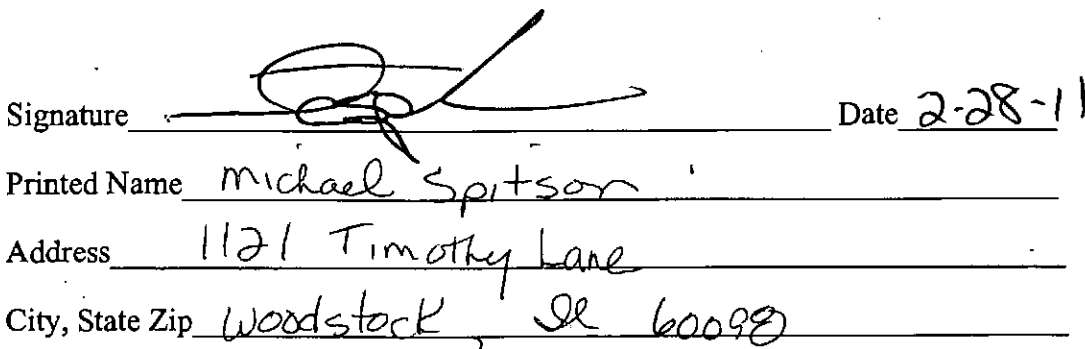 Signature Date 2-28-11
Printed Name Michael Spitson
Address 1121 Timothy Lane
City, State Zip Woodstock, Il 60098